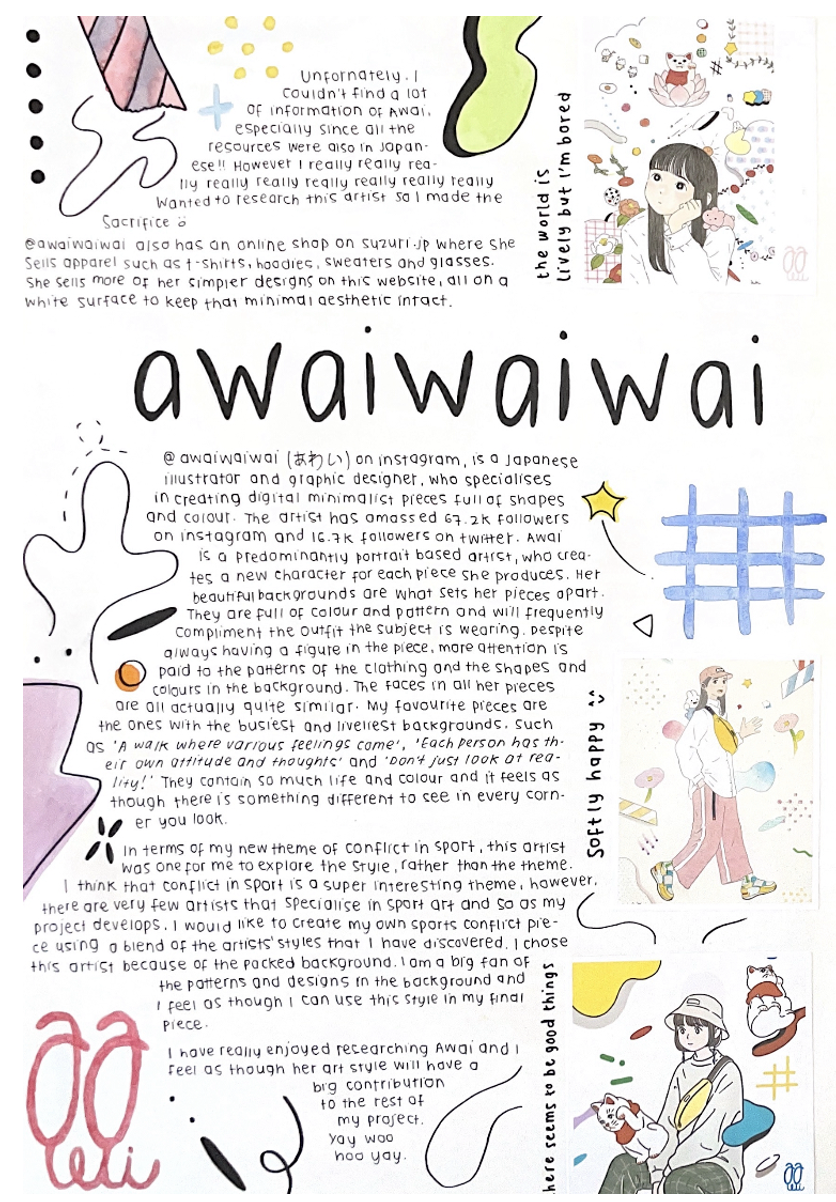 Unfornately, I
couldn't find a lot
of information of Awai,
especially since all the
resources were also in Japan-
ese!! However I really really rea-
lly really really really really really
wanted to research this artist so I made the
sacrifice
@awaiwaiwai also has an online shop on suzuri.jp where she
sells apparel such as t-shirts, hoodies, sweaters and glasses.
She sells more of her simpler designs on this website, all on a
white surface to keep that minimal aesthetic intact.
the world is
lively but i'm bored
awaiwaiwai
@awaiwaiwai (あわい) on instagram, is a Japanese
illustrator and graphic designer, who specialises
in creating digital minimalist pieces full of shapes
and colour. The artist has amassed 67.2K followers
on instagram and 16.7K followers on twitter. Awai
is a predominantly portrait based artist, who crea-
tes a new character for each piece she produces. Her
beautiful backgrounds are what sets her pieces apart.
They are full of colour and pattern and will frequently
compliment the outfit the subject is wearing. Despite
always having a figure in the piece, more attention is
paid to the patterns of the clothing and the shapes and
colours in the background. The faces in all her pieces
are all actually quite similar. My favourite pieces are
the ones with the busiest and liveliest backgrounds. Such
as 'A walk where various feelings come', 'Each person has th-
eir own attitude and thoughts' and 'Don't just look at rea-
lity!' They contain so much life and colour and it feels as
though there is something different to see in every corn-
er you look.
softly happy ^^
In terms of my new theme of conflict in sport, this artist
was one for me to explore the style, rather than the theme.
I think that conflict in sport is a super interesting theme, however,
there are very few artists that specialise in sport art and so as my
project develops, I would like to create my own sports conflict pie-
ce using a blend of the artists' styles that I have discovered. I chose
this artist because of the packed background. I am a big fan of
the patterns and designs in the background and
I feel as though I can use this style in my final
piece.
here seems to be good things
I have really enjoyed researching Awai and I
feel as though her art style will have a
big contribution
to the rest of
my project.
Yay woo
hoo yay.